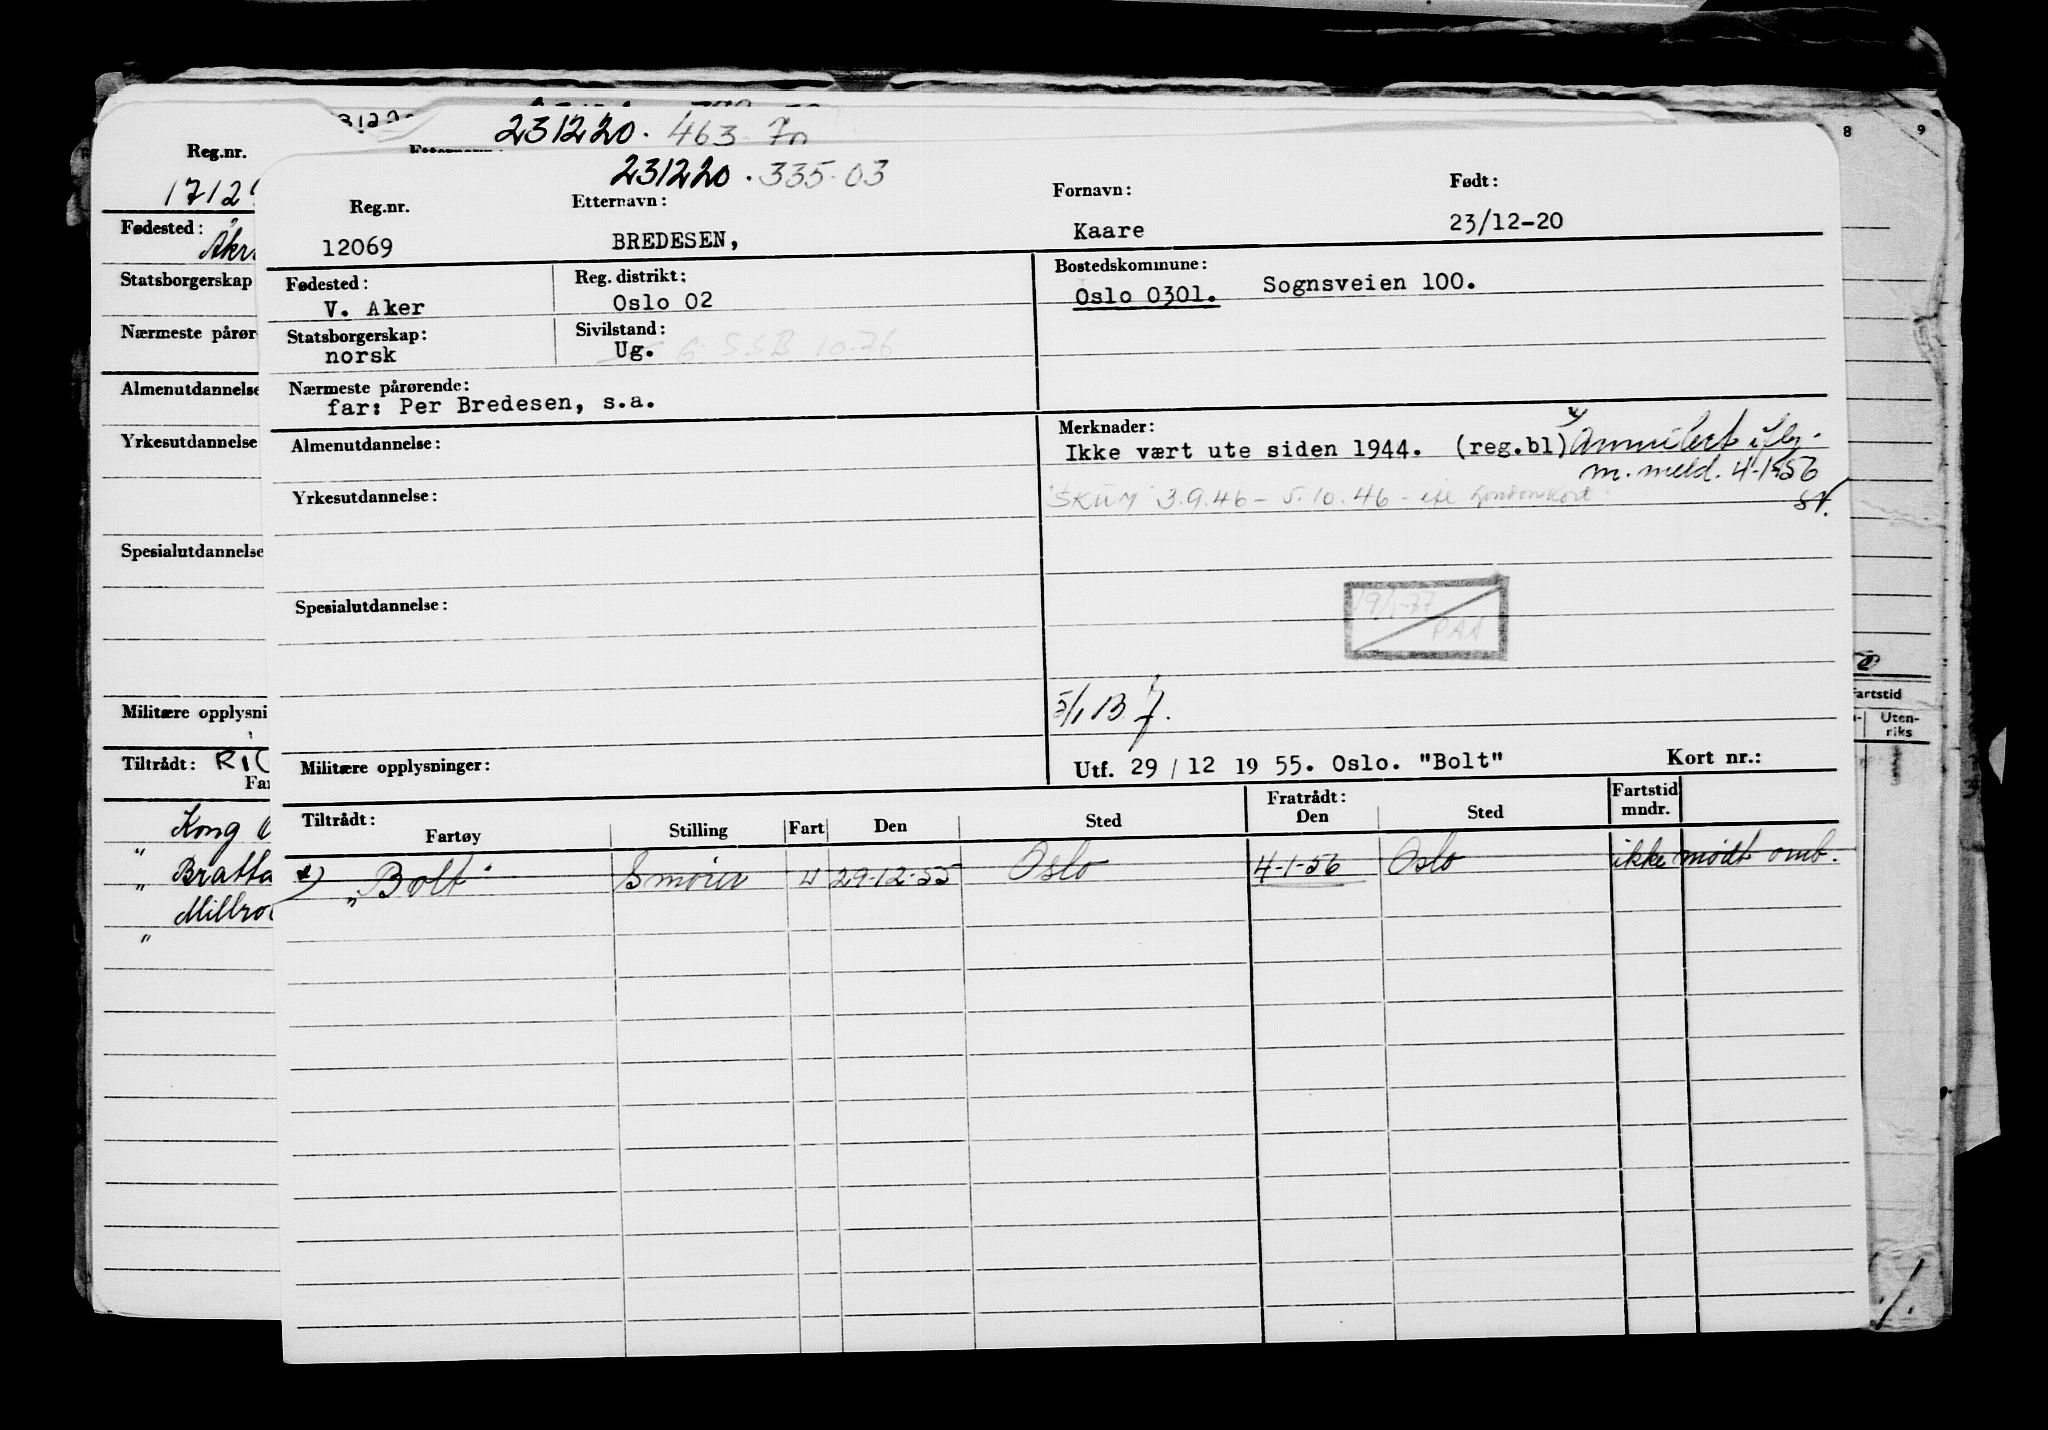 8 9
231220. 463
231220. 335-03
Reg.nr.
Reg.nr. Etternavn: Fornavn: Født:
12069 BREDESEN, Kaare 23/12-20
Fødested:
Fødested: Reg. distrikt: Bostedskommune:
V. Aker Oslo 02 Oslo 0301. Sognsveien 100.
Statsborgerskap
Statsborgerskap: Sivilstand:
norsk Ug. G. SSB 10-76
Nærmeste pårør
Nærmeste pårørende:
far: Per Bredesen, s.a.
Almenutdannelse
Almenutdannelse: Merknader:
Ikke vært ute siden 1944. (reg.bl) x) Annulert iflg.
m. meld. 4-1-56
Yrkesutdannelse
Yrkesutdannelse:
"SKUM" 3.9.46 - 5.10.46 - ifl. Londonkort
Spesialutdannelse
Spesialutdannelse:
19/1-77
PAA
5/1 13
Militære opplysni
Militære opplysninger: Utf. 29 / 12 19 55. Oslo. "Bolt" Kort nr.:
Fartstid
Uten-
riks
Tiltrådt:
Tiltrådt: Fratrådt: Fartstid
Fartøy Stilling Fart Den Sted Den Sted mndr.
x) "Bolt" Smører U 29-12-55 Oslo 4-1-56 Oslo ikke mødt omb.
Kong
" Bratta
"
"